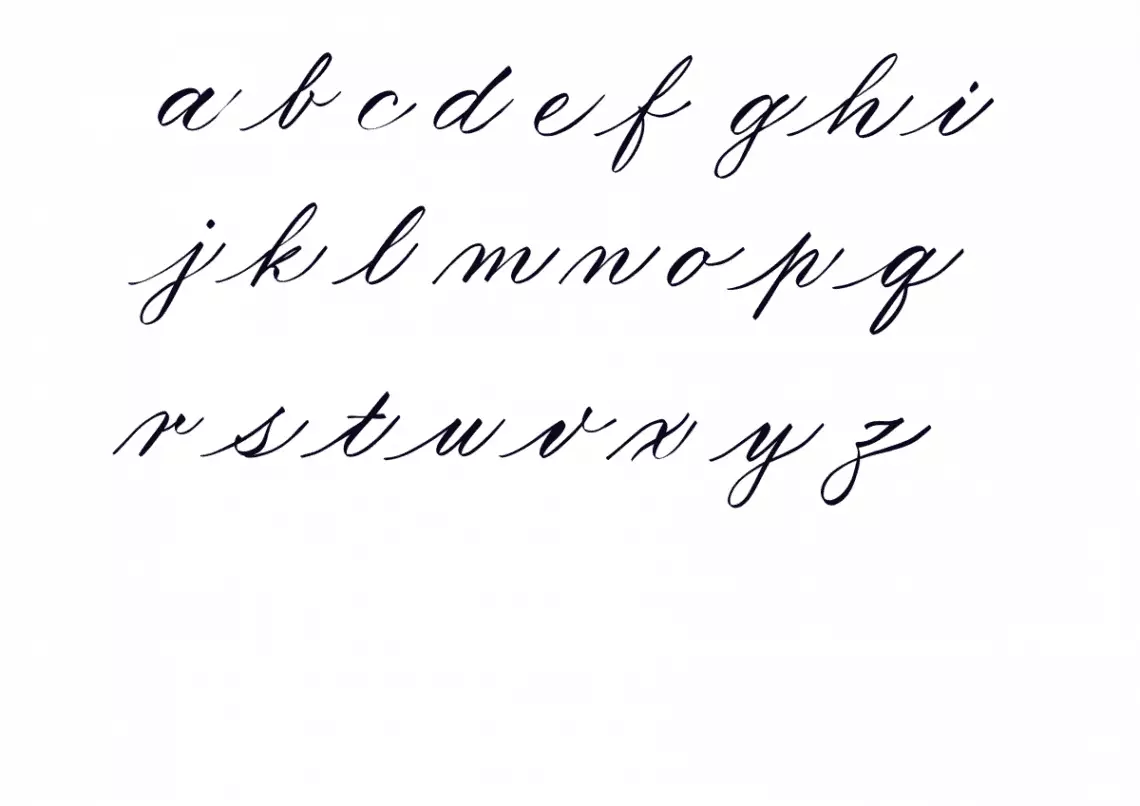 a b c d e f g h i
j k l m n o p q
r s t u v x y z